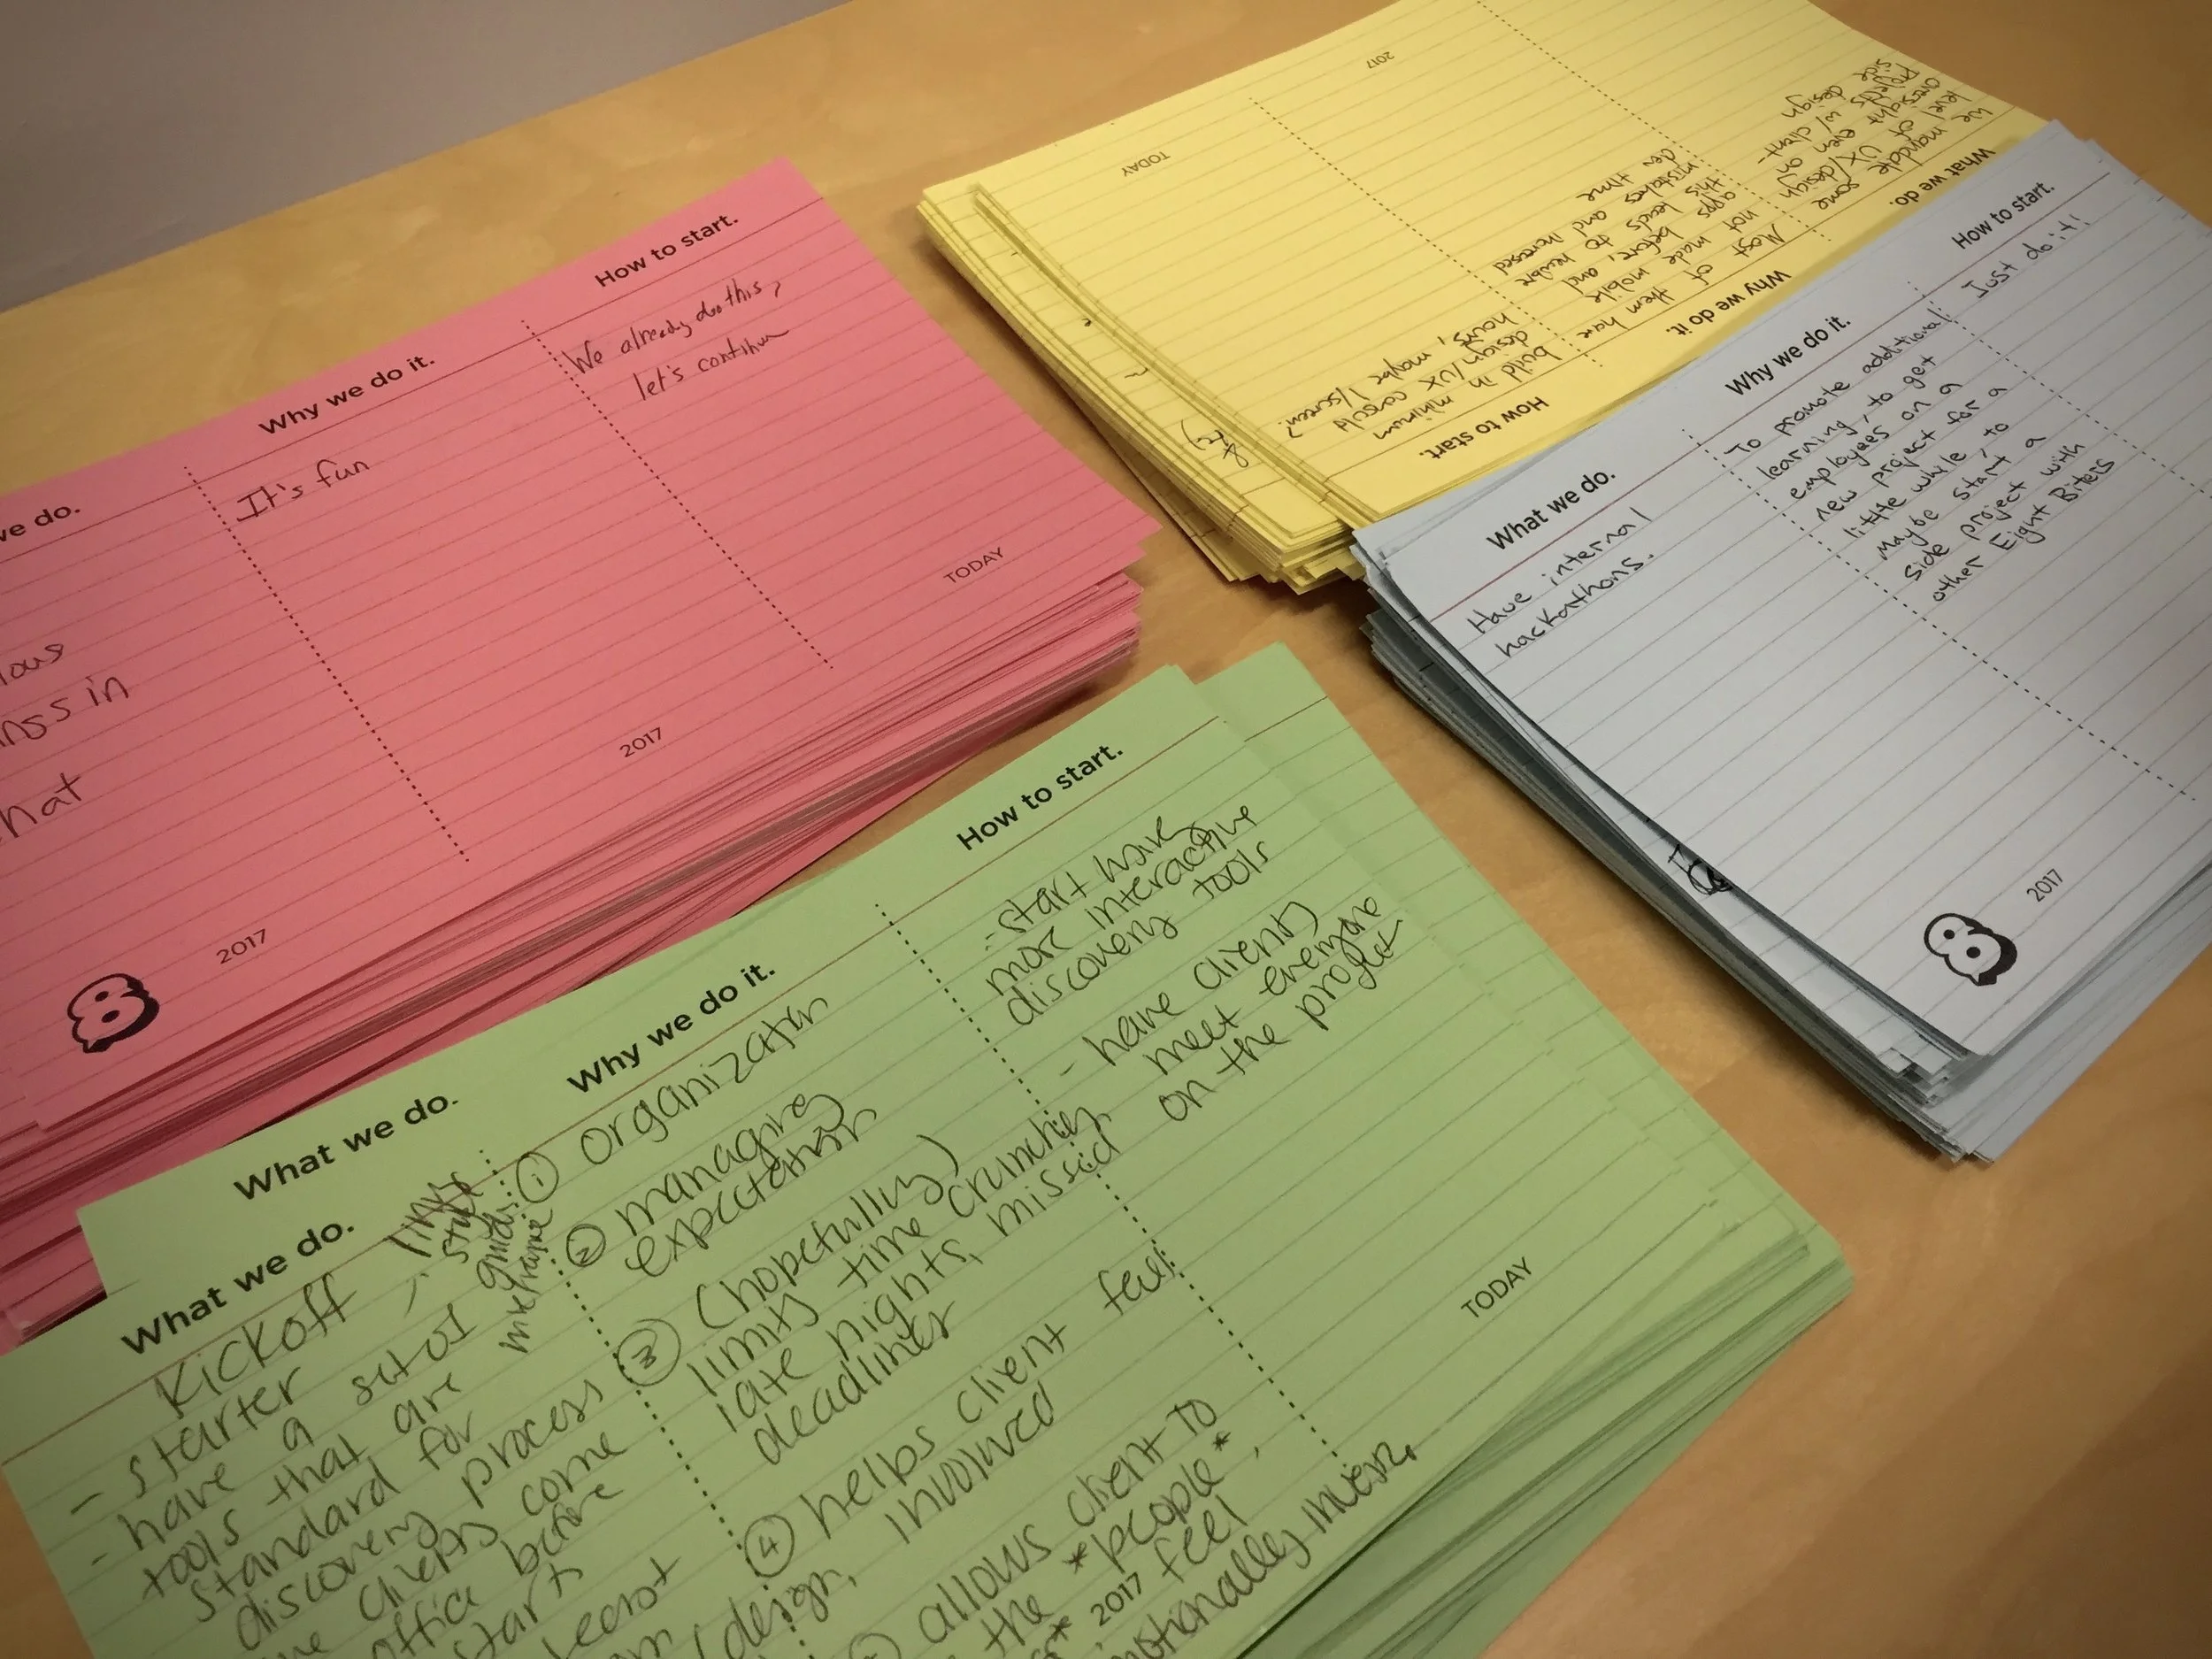 we do.
Why we do it.
How to start.
It's fun
We already do this,
let's continue
in
hat
TODAY
2017
2017
8
What we do.
We mandate some
level of UX/design
oversight even on
projects w/ client-
side design
Why we do it.
Most of them have
not made mobile
apps before, and
this leads to newbie
mistakes and increased
dev time
How to start.
build in minimum
design/UX consult
hours, maybe 1/screen?
TODAY
2017
What we do.
Have internal
hackathons.
Why we do it.
To promote additional
learning, to get
employees on a
new project for a
little while to
maybe start a
side project with
other Eight Biters
How to start.
Just do it!
2017
8
What we do.
What we do.
Kickoff
- starter
- have a set of
tools that are
standard for
discovery process
clients come
office before
starts
Why we do it.
① organization
② managing
expectation
③ (hopefully)
limits time crunches,
late nights, missed
deadlines
④ helps client feel
involved
allows client to
the *people*
feel
2017
How to start.
- start
more interactive
discovery tools
- have clients
meet everyone
on the project
TODAY